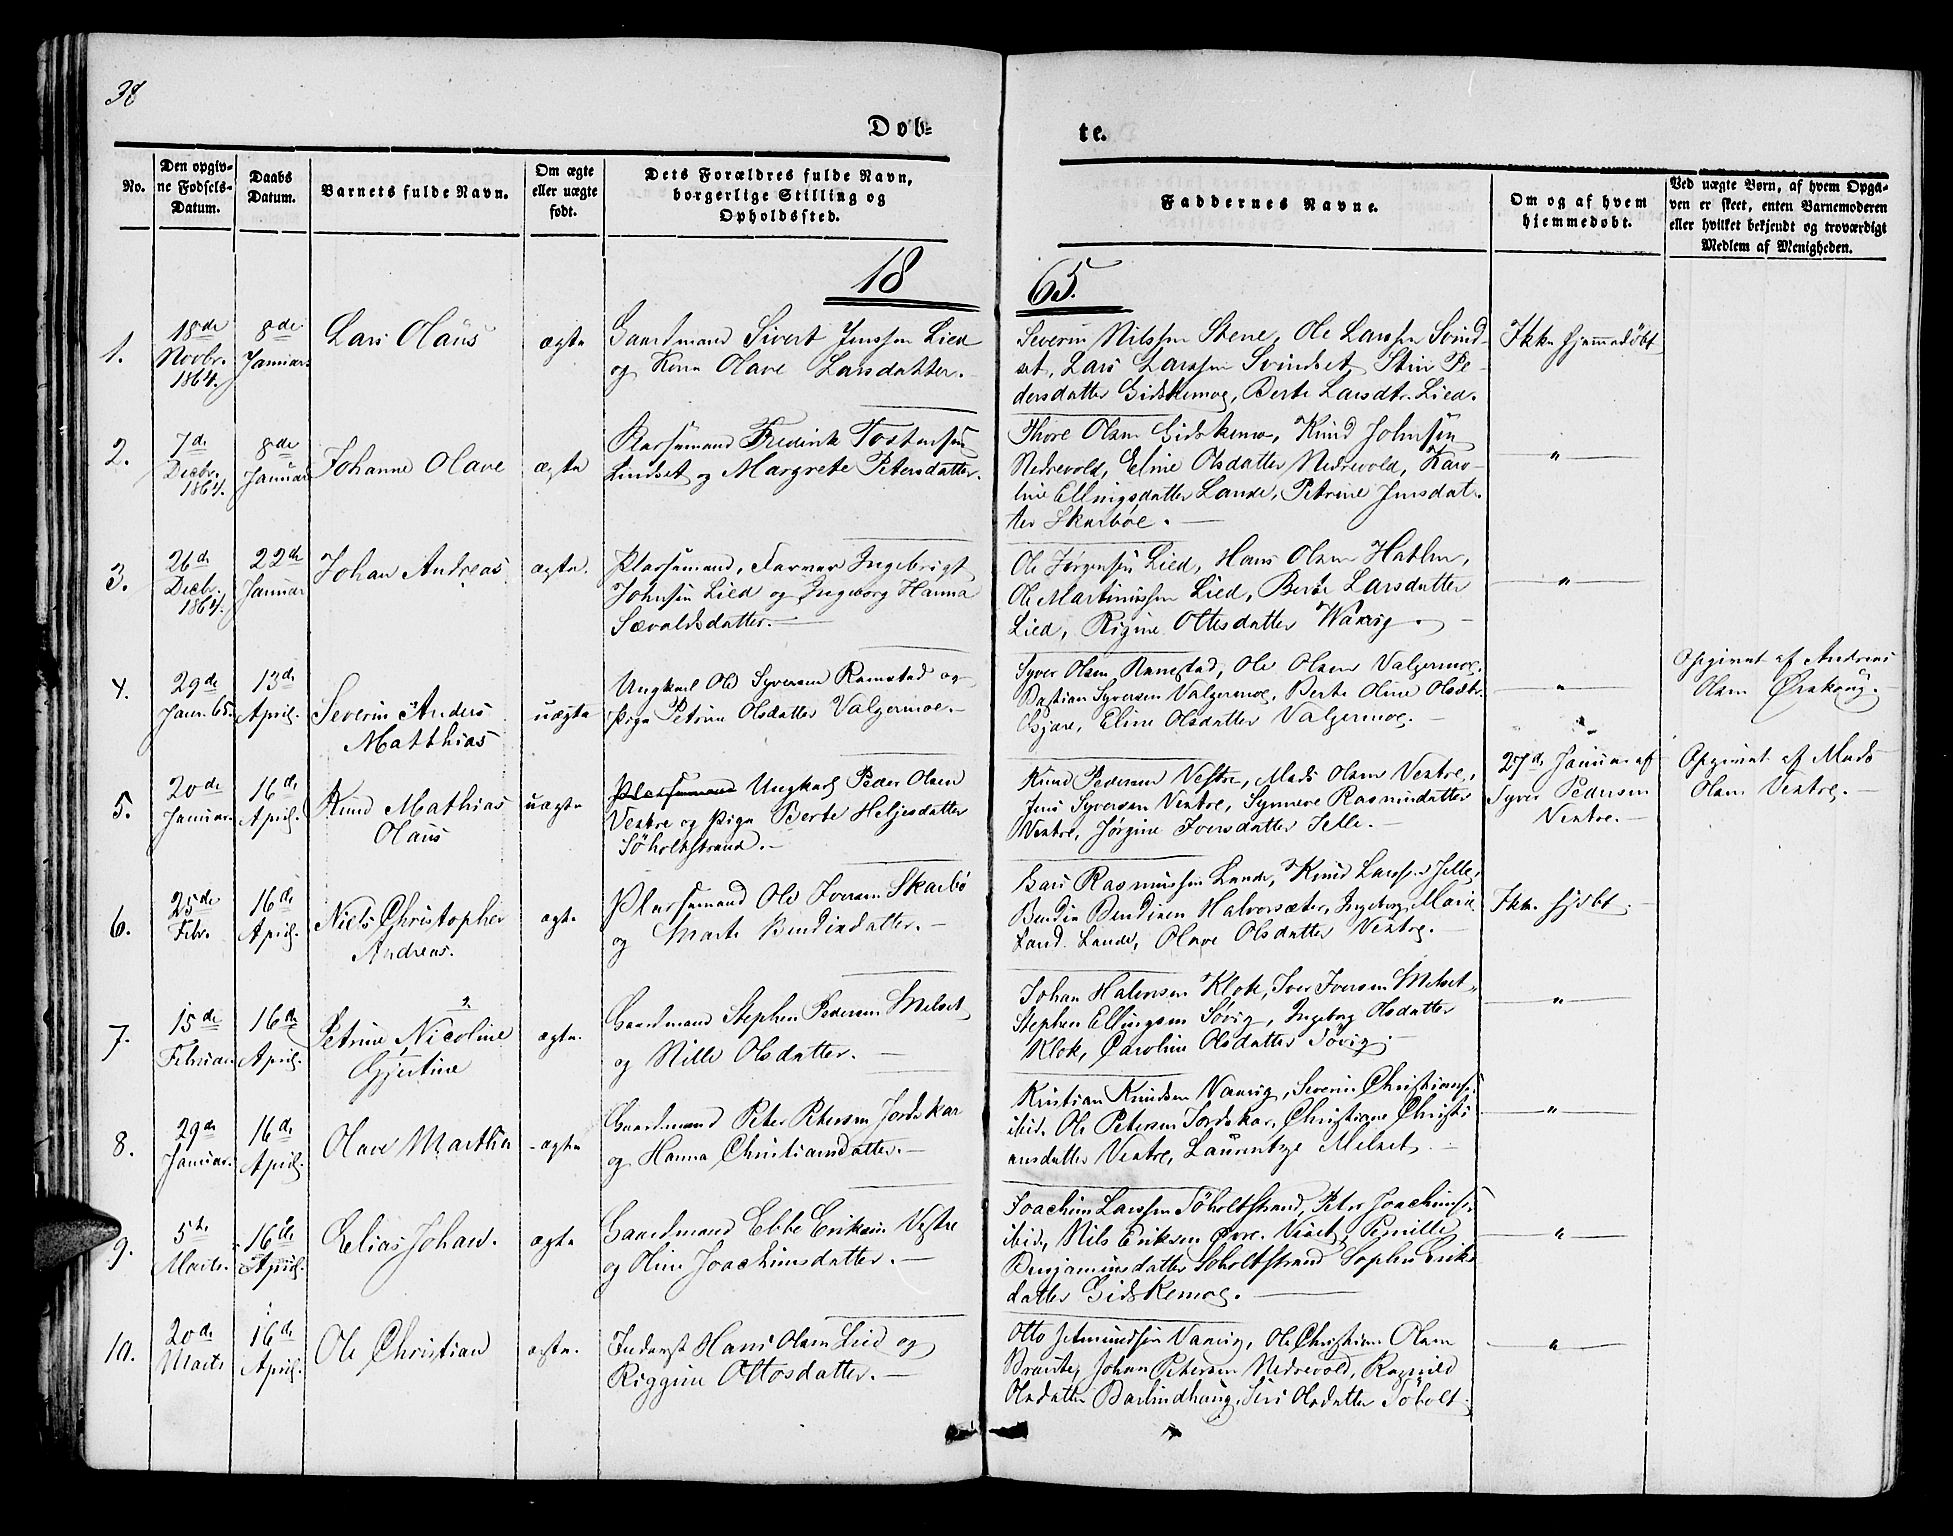 38
Døb-
te.
No.
Den opgiv-
ne Fødsels-
Datum.
Daabs
Datum.
Barnets fulde Navn.
Om ægte
eller uægte
født.
Dets Forældres fulde Navn,
borgerlige Stilling og
Opholdssted.
Faddernes Navne.
Om og af hvem
hjemmedøbt.
Ved uægte Børn, af hvem Opga-
ven er skeet, enten Barnemoderen
eller hvilket bekjendt og troværdigt
Medlem af Menigheden.
18
65.
1.
18de
Novbr.
1864.
8de
Januar
Lars Olaus
ægte
Gaardmand Sivert Jenssen Lied
og Kone Olave Larsdatter.
Severin Nilssen Stene, Ole Larssen Svind-
set, Lars Larssen Svindset, Stine Pe-
dersdatter Gidskemoe, Berte Larsdtr. Lied.
Ikke hjemmedøbt
2.
7de
Decbr.
1864.
8de
Januar
Johanne Olave
ægte
Plassemand Fredrik Tostensen
Lindset og Margrete Petersdatter.
Thore Olsen Gidskemo, Knud Johnsen
Nedrevold, Eline Olsdatter Nedrevold, Karo-
line Ellingsdatter Lande, Petrine Jensdat-
ter Skarbøe.
"
3.
26de
Decbr.
1864.
22de
Januar
Johan Andreas
ægte.
Plassemand, Farver Ingebrigt
Johnsen Lied og Ingeborg Hanna
Sævaldsdatter.
Ole Jørgensen Lied, Hans Olsen Hatlen,
Ole Martinussen Lied, Berte Larsdatter
Lied, Rigine Ottesdatter Waxvig.
"
4.
29de
Januar 65.
13de
April.
Severin Anders
Matthias
uægte
Ungkarl Ole Syversen Ramstad og
Pige Petrine Olsdatter Valgermoe.
Syver Olsen Ramstad, Ole Olsen Valgermoe,
Bastian Syversen Valgermoe, Berte Oline Olsdtr.
Gjære, Eline Olsdatter Valgermoe.
"
Opgivet af Andreas
Olsen Ørskoug.
5.
20de
Januar.
16de
April.
Knud Mathias
Olaus
uægte
Plassemand Ungkarl Peder Olsen
Vestre og Pige Berte Heljesdatter
Søholtstrand.
Knud Pedersen Vestre, Mads Olsen Vestre,
Jens Syversen Vestre, Synnøve Rasmusdatter
Vestre, Jørgine Iversdatter Jelle.
27de Januar af
Syver Pedersen
Vestre.
Opgivet af Mads
Olsen Vestre.
6.
25de
Febr.
16de
April.
Niels Christopher
Andreas.
ægte
Plassemand Ole Iversen Skarbø
og Marte Bendixdatter.
Lars Rasmussen Lande, Knud Larssen Jelle,
Bendix Bendixen Halvorsæter, Ingeborg Marie
Land. Lande, Olave Olsdatter Vestre.
Ikke hjdbt
7.
15de
Februar
16de
April.
2.
Petrine Nicoline
Gjertine
ægte.
Gaardmand Stephen Pedersen Melset
og Nille Olsdatter.
Johan Halvorsen Klok, Iver Iversen Melset,
Stephen Ellingsen Søvig, Ingeborg Olsdatter
Klok, Caroline Olsdatter Søvig.
"
8.
29de
Januar.
16de
April.
Olave Marthea
ægte
Gaardmand Peter Petersen Jordskar
og Hanna Christiansdatter.
Kristian Knudsen Vaxvig, Severin Christians.
ibid. Ole Petersen Jordskar, Christiane Christi-
ansdatter Vestre, Laurentze Melset.
"
9.
5te
Marts.
16de
April.
Elias Johan.
ægte
Gaardmand Ebbe Eriksen Vestre
og Oline Joachimsdatter.
Joachim Larssen Søholtstrand, Peter Joachims.
ibid, Nils Eriksen Øvre Viset, Pernille
Benjaminsdatter Søholtstrand Sophie Eriks-
datter Gidskemoe.
"
10.
20de
Marts
16de
April.
Ole Christian
ægte.
Inderst Hans Olsen Lied og
Riggine Ottosdatter.
Otto Amundsen Vaxvig, Ole Christian Olsen
Brauste, Johan Petersen Nedrevold, Ragnild
Olsdatter Barlindhaug, Siri Olsdatter Søholt.
"